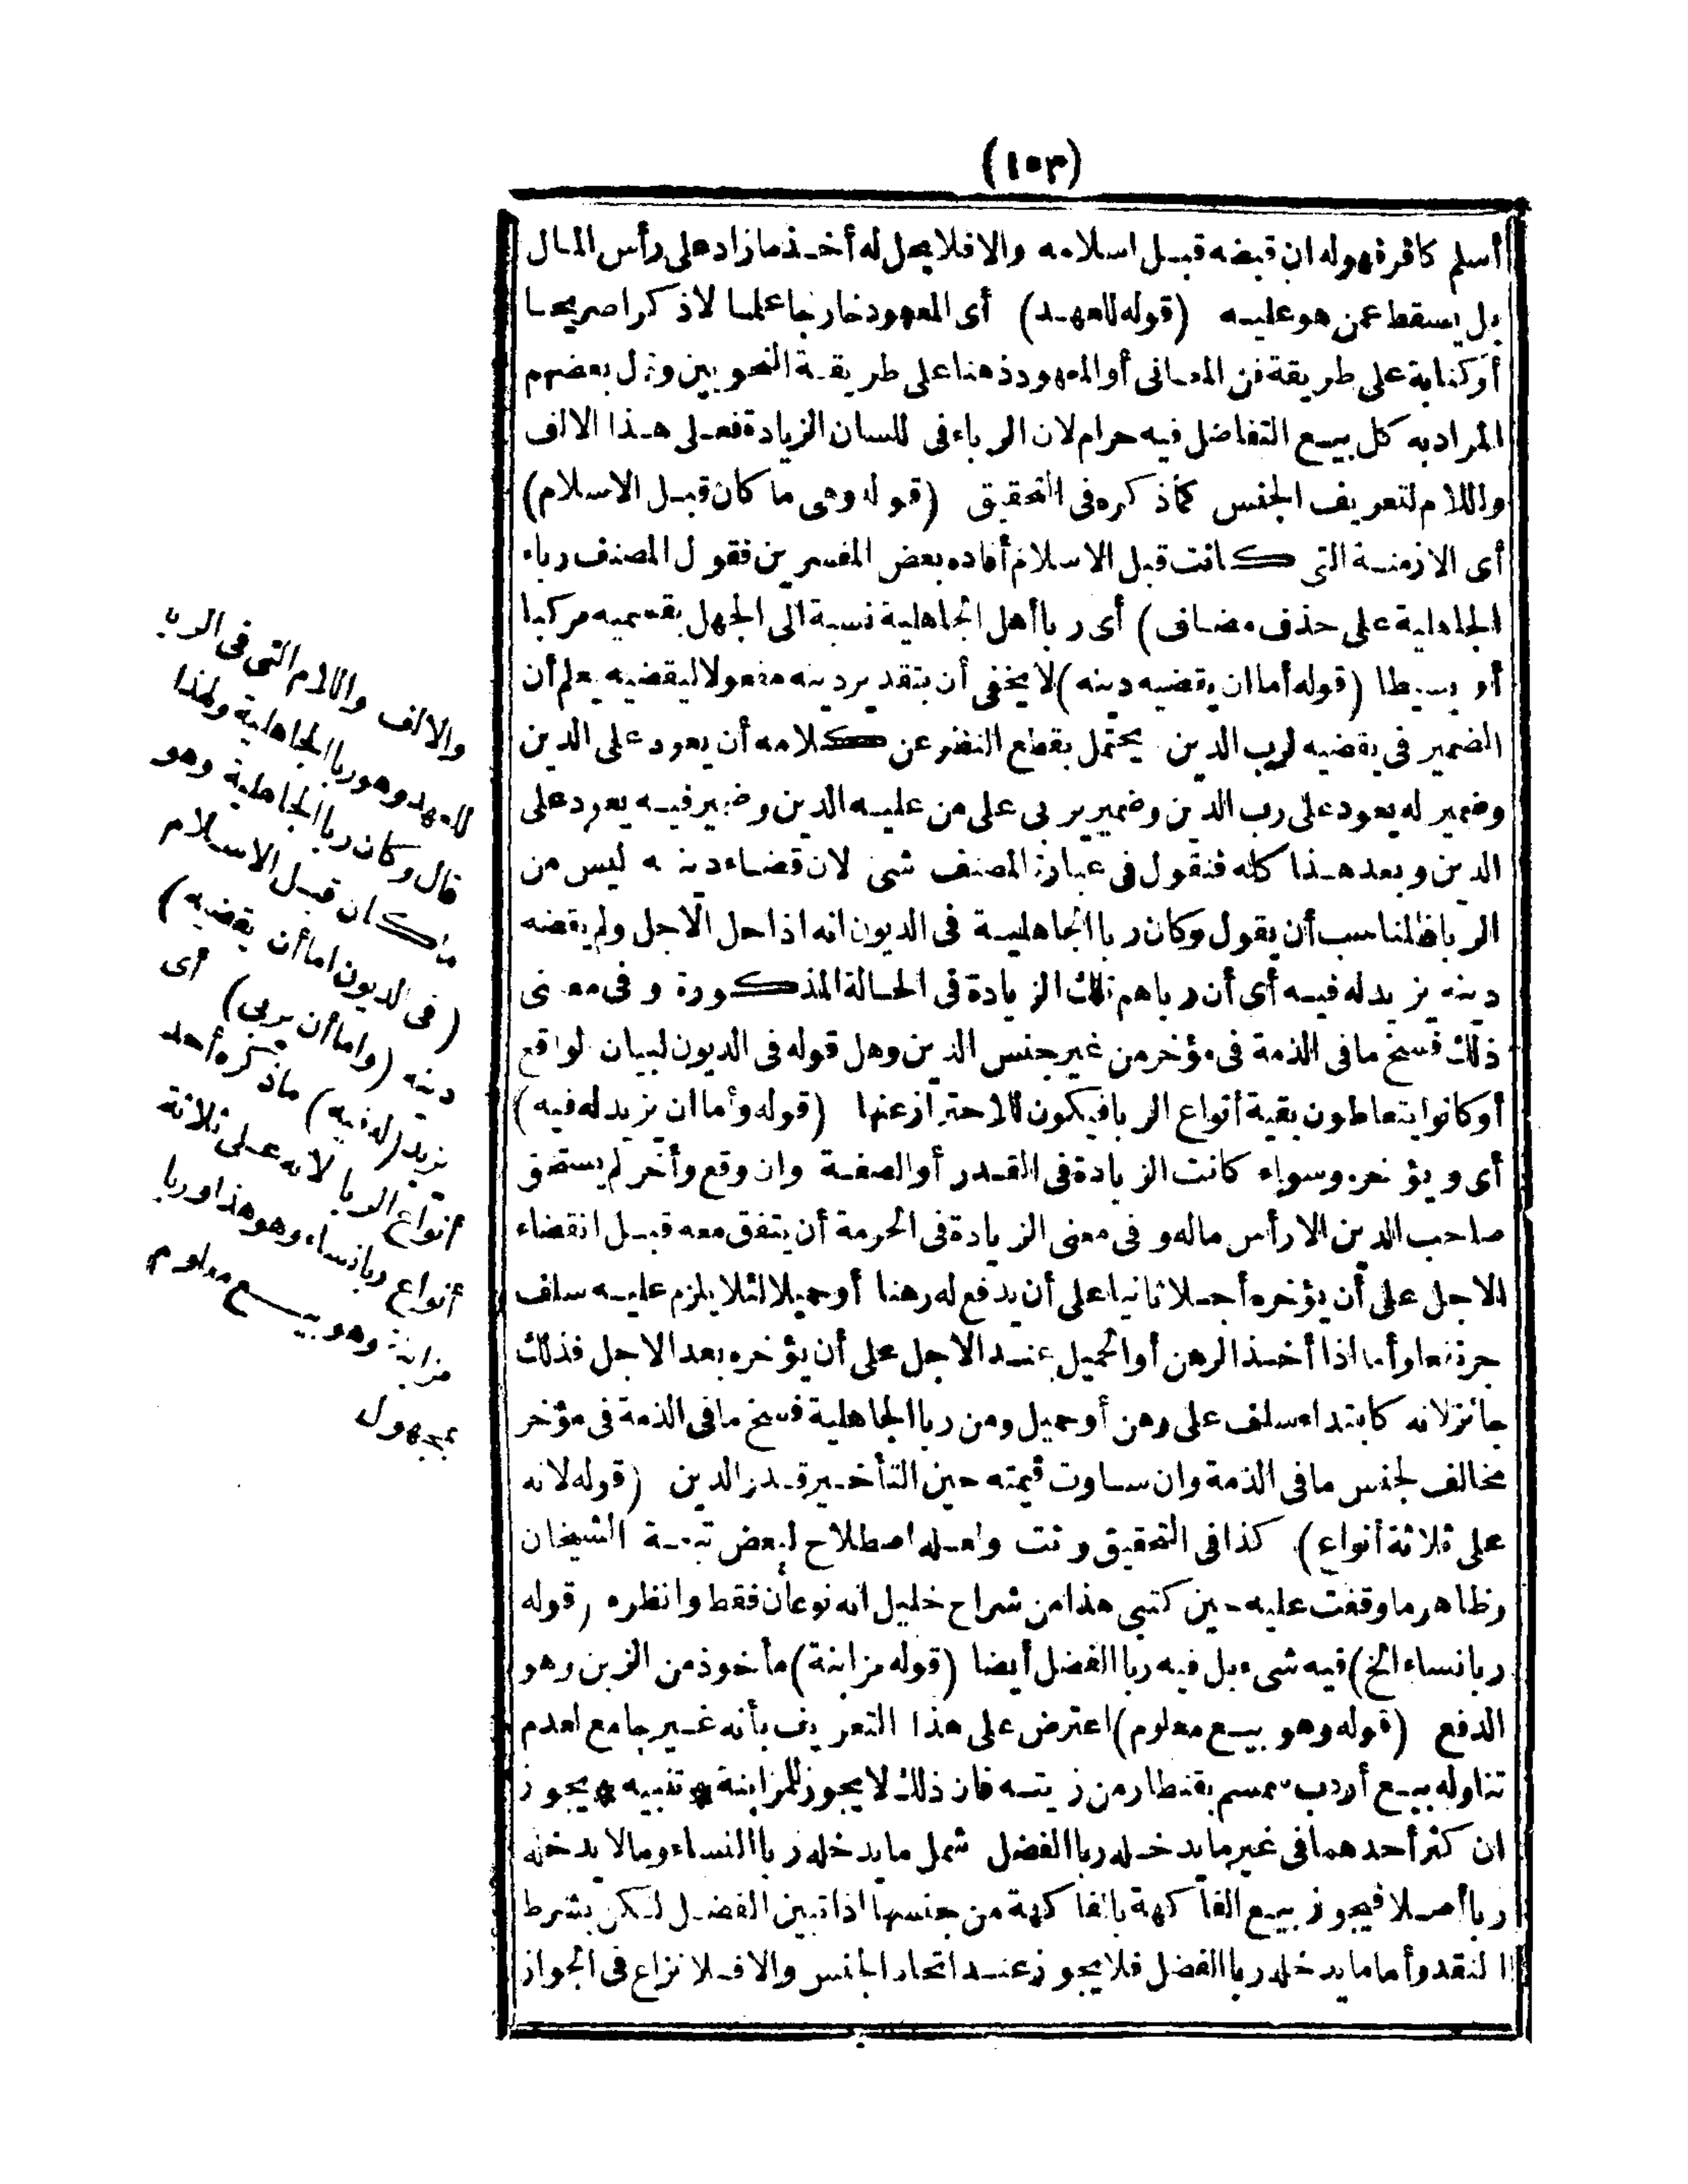 (١٠٣)
أسلم كافر فهو له ان قبضه قبل اسلامه والا فلا يحل له أخذ ما زاد على رأس المال
بل يسقط عمن هو عليه (قوله للعهد) أى المعهود خارجا علما لا ذكرا صريحا
أو كناية على طريقة فن المعانى أو المعهود ذهنا على طريقة النحويين وقال بعضهم
المراد به كل بيع التفاضل فيه حرام لان الرباء فى اللسان الزيادة فعلى هذا الالف
واللام لتعريف الجنس كما ذكره فى التحقيق (قوله وهى ما كان قبل الاسلام)
أى الازمنة التى كانت قبل الاسلام أفاده بعض المفسرين فقول المصنف رباء
الجاهلية على حذف مضاف) أى ربا أهل الجاهلية نسبة الى الجهل بقسميه مركبا
أو بسيطا (قوله أما ان يقضيه دينه) لا يخفى أن بتقدير دينه مفعولا ليقضيه يعلم أن
الضمير فى يقضيه لرب الدين يحتمل بقطع النظر عن كلامه أن يعود على الدين
وضمير له يعود على رب الدين وضمير يربى على من عليه الدين وضمير فيه يعود على
الدين وبعد هذا كله فنقول فى عبارة المصنف شئ لان قضاء دينه ليس من
الربا فالمناسب أن يقول وكان ربا الجاهلية فى الديون انه اذا حل الاجل ولم يقضه
دينه يزيد له فيه أى أن رباهم تلك الزيادة فى الحالة المذكورة وفى معنى
ذلك فسخ ما فى الذمة فى مؤخر من غير جنس الدين وهل قوله فى الديون لبيان لواقع
أو كانوا يتعاطون بقية أنواع الربا فيكون للاحتراز عنها (قوله وأما ان يزيد له فيه)
أى ويؤخره وسواء كانت الزيادة فى القدر أو الصفة وان وقع وأخر لم يستحق
صاحب الدين الا رأس ماله وفى معنى الزيادة فى الحرمة أن يتفق معه قبل انقضاء
الاجل على أن يؤخره أجلا ثانيا على أن يدفع له رهنا أو حميلا لئلا يلزم عليه سلف
جر نفعا وأما اذا أخذ الرهن أو الحميل عند الاجل على أن يؤخره بعد الاجل فذلك
جائز لانه كابتداء سلف على رهن أو حميل ومن ربا الجاهلية فسخ ما فى الذمة فى مؤخر
مخالف لجنس ما فى الذمة وان ساوت قيمته حين التأخير قدر الدين (قوله لانه
على ثلاثة أنواع) كذا فى التحقيق وتت ولعله اصطلاح لبعض تبعه الشيخان
وظاهر ما وقفت عليه حين كتبى هذا من شراح خليل انه نوعان فقط وانظره (قوله
ربا نساء الخ) فيه شىء بل فيه ربا الفضل أيضا (قوله مزابنة) مأخوذ من الزبن وهو
الدفع (قوله وهو بيع معلوم) اعترض على هذا التعريف بأنه غير جامع لعدم
تناوله بيع أردب سمسم بقنطار من زيته فان ذلك لا يجوز للمزابنة * تنبيه * يجوز
ان كثر أحدهما فى غير ما يدخله ربا الفضل شمل ما يدخله ربا النساء وما لا يدخله
ربا أصلا فيجوز بيع الفاكهة بالفاكهة من جنسها اذا تبين الفضل لكن بشرط
النقد وأما ما يدخله ربا الفضل فلا يجوز عند اتحاد الجنس والا فلا نزاع فى الجواز
والالف واللام التى فى الربا
للعهد وهو ربا الجاهلية ولهذا
قال وكان ربا الجاهلية وهو
ما كان قبل الاسلام
(فى الديون اما أن يقضيه)
دينه (واما أن يربى) أى
يزيد (له فيه) ما ذكره أحد
أنواع الربا لانه على ثلاثة
أنواع ربا نساء وهو هذا وربا
مزابنة وهو بيع معلوم
بمجهول